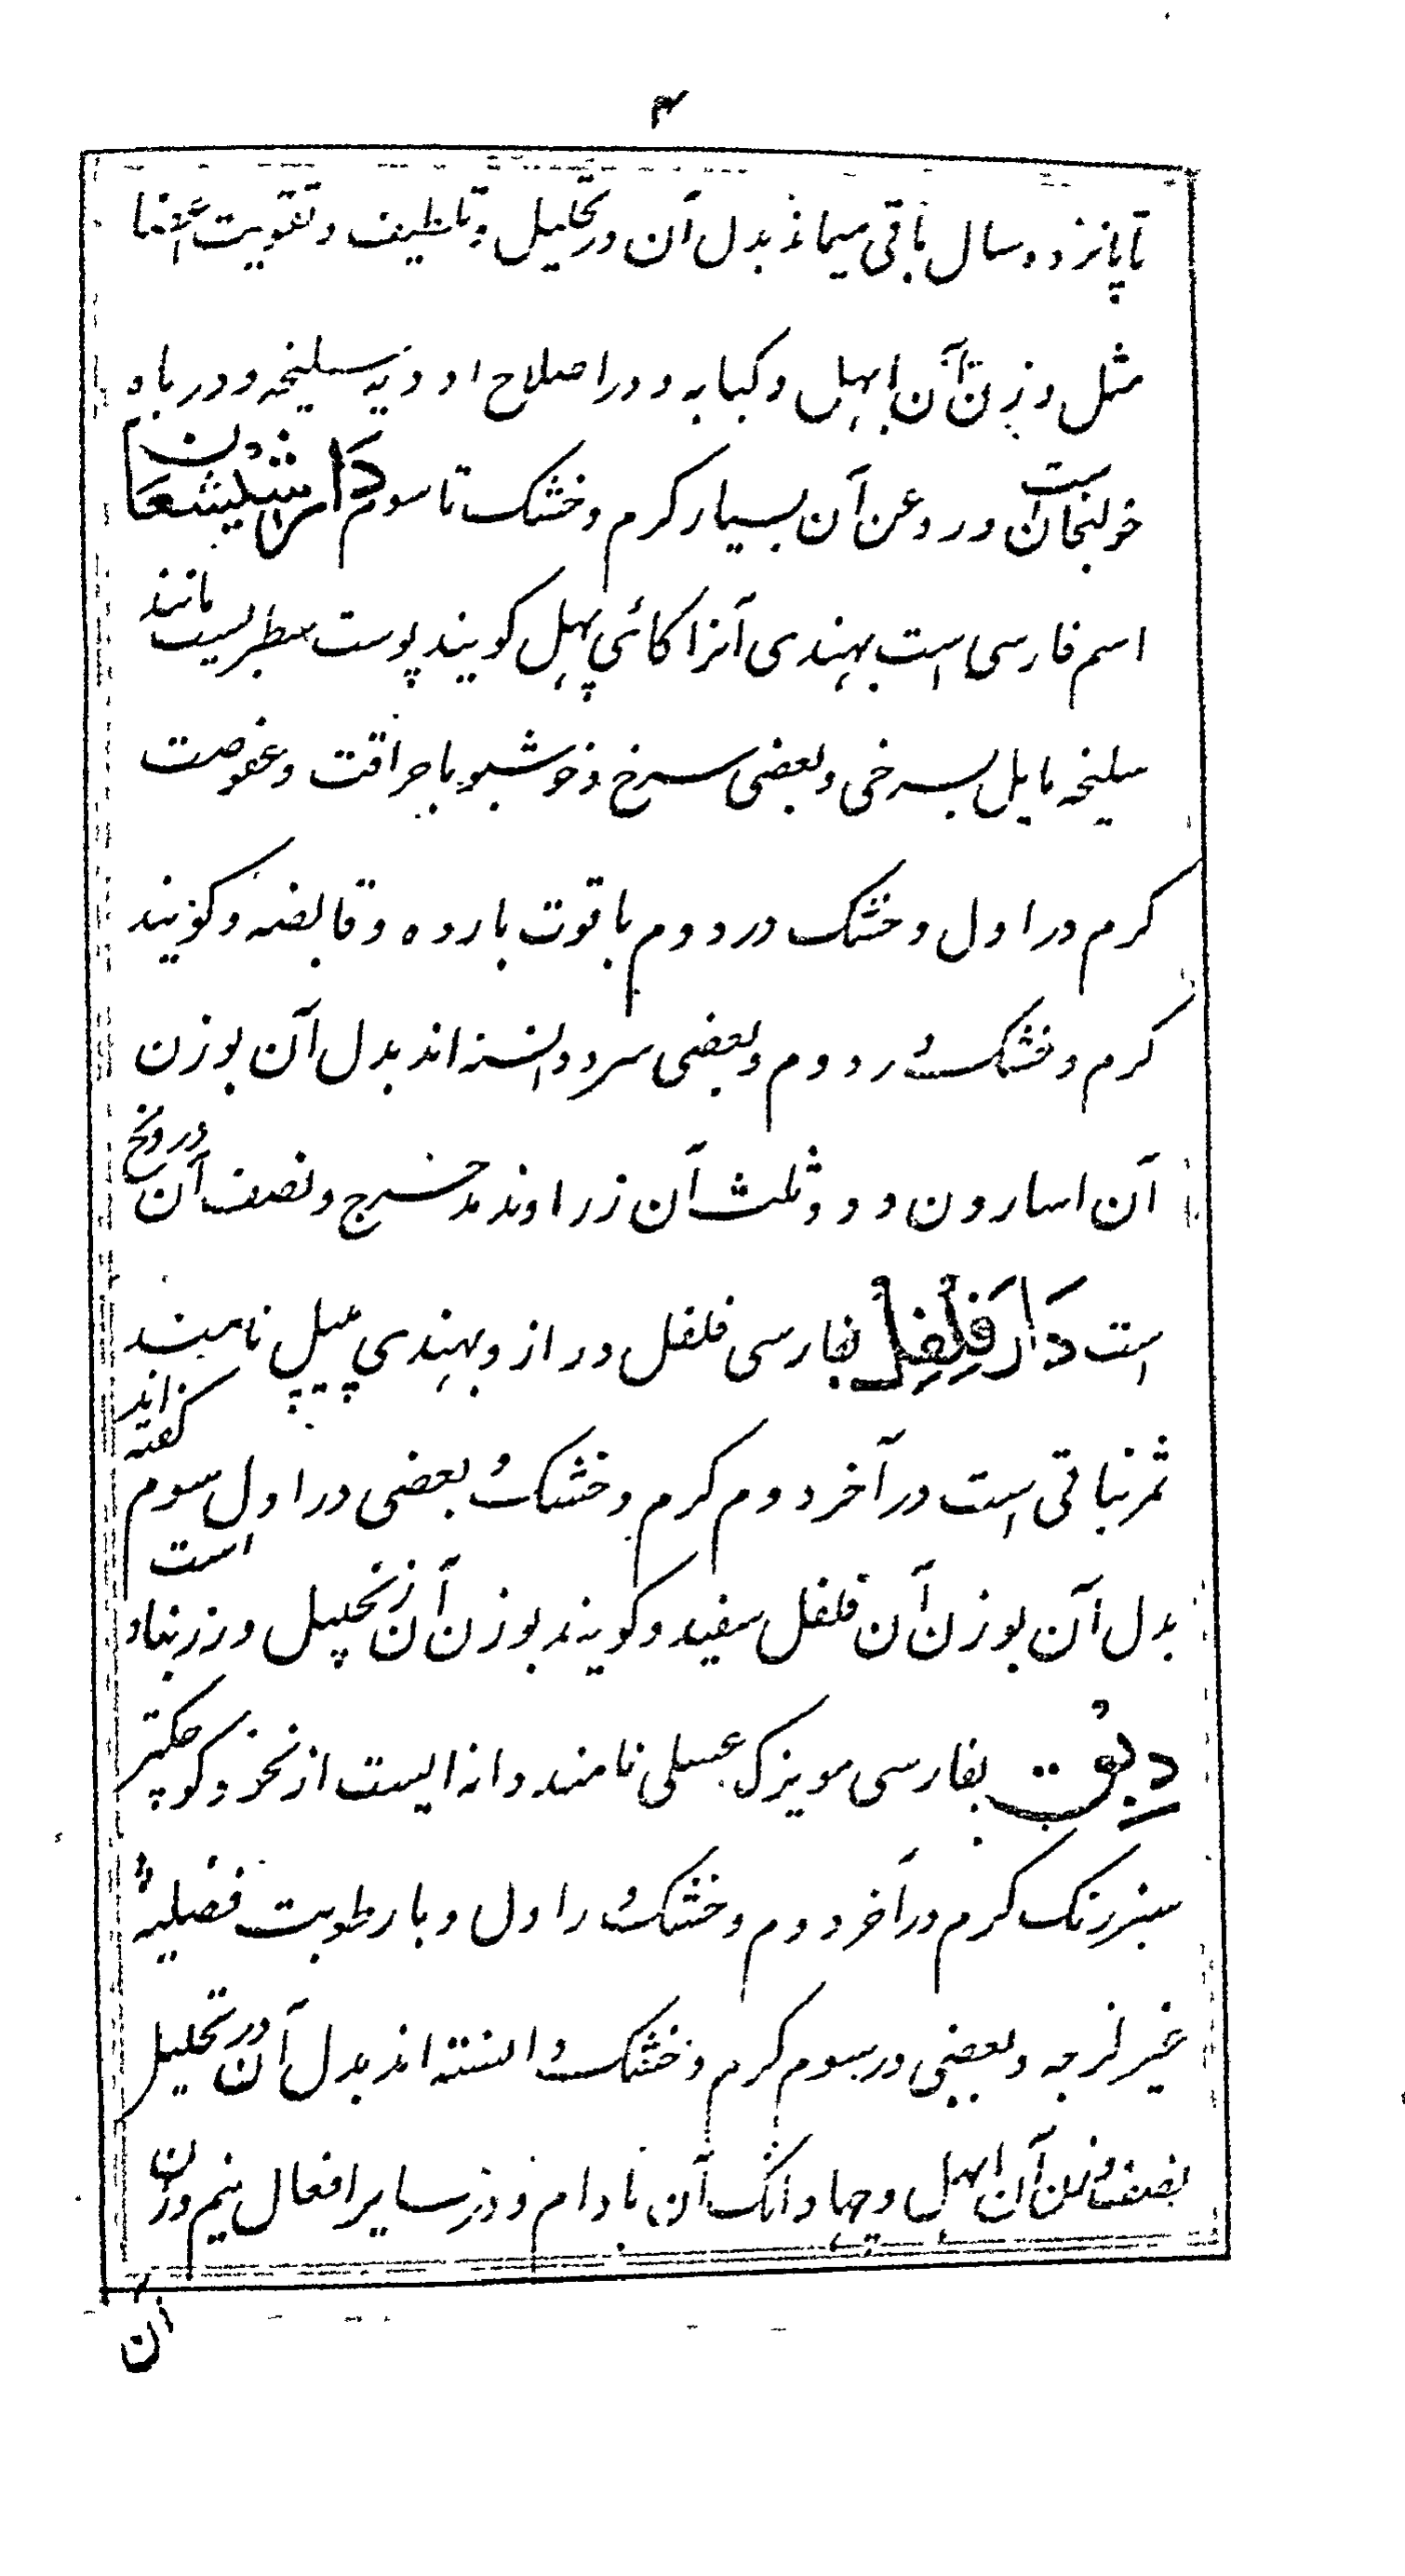 ۴
تا پانزده سال باقی میماند بدل آن در تحلیل و تلطیف و تقویت اعضا
مثل وزن آن ابهل و کبابه و در اصلاح ادویه سلیخه و در باه
خولنجان است و روغن آن بسیار کرم و خشک تا سوم دَارشیشعَان
اسم فارسی است بهندی آنرا کائی پهل کویند پوست سطبریست مانند
سلیخه مایل بسرخی و بعضی سرخ و خوشبو با حرافت و عفوصت
کرم در اول و خشک در دوم با قوت بارده و قابضه و کویند
کرم و خشک در دوم و بعضی سرد دانسته اند بدل آن بوزن
آن اسارون و دو ثلث آن زراوند مدحرج و نصف آن درونج
است دَار فِلفِل بفارسی فلفل دراز و بهندی پیپل نامند
ثمر نباتی است در آخر دوم کرم و خشک و بعضی در اول سوم گفته اند
بدل آن بوزن آن فلفل سفید و کویند بوزن آن زنجبیل و زرنباد است
دِبق بفارسی مویزک عسلی نامند دانه ایست از نخود کوچکتر
سبز رنک کرم در آخر دوم و خشک در اول و با رطوبت فضلیهٔ
غیر لزجه و بعضی در سوم کرم و خشک دانسته اند بدل آن در تحلیل
نصف وزن آن ابهل و چهار دانک آن بادام و در سایر افعال نیم وزن
آن